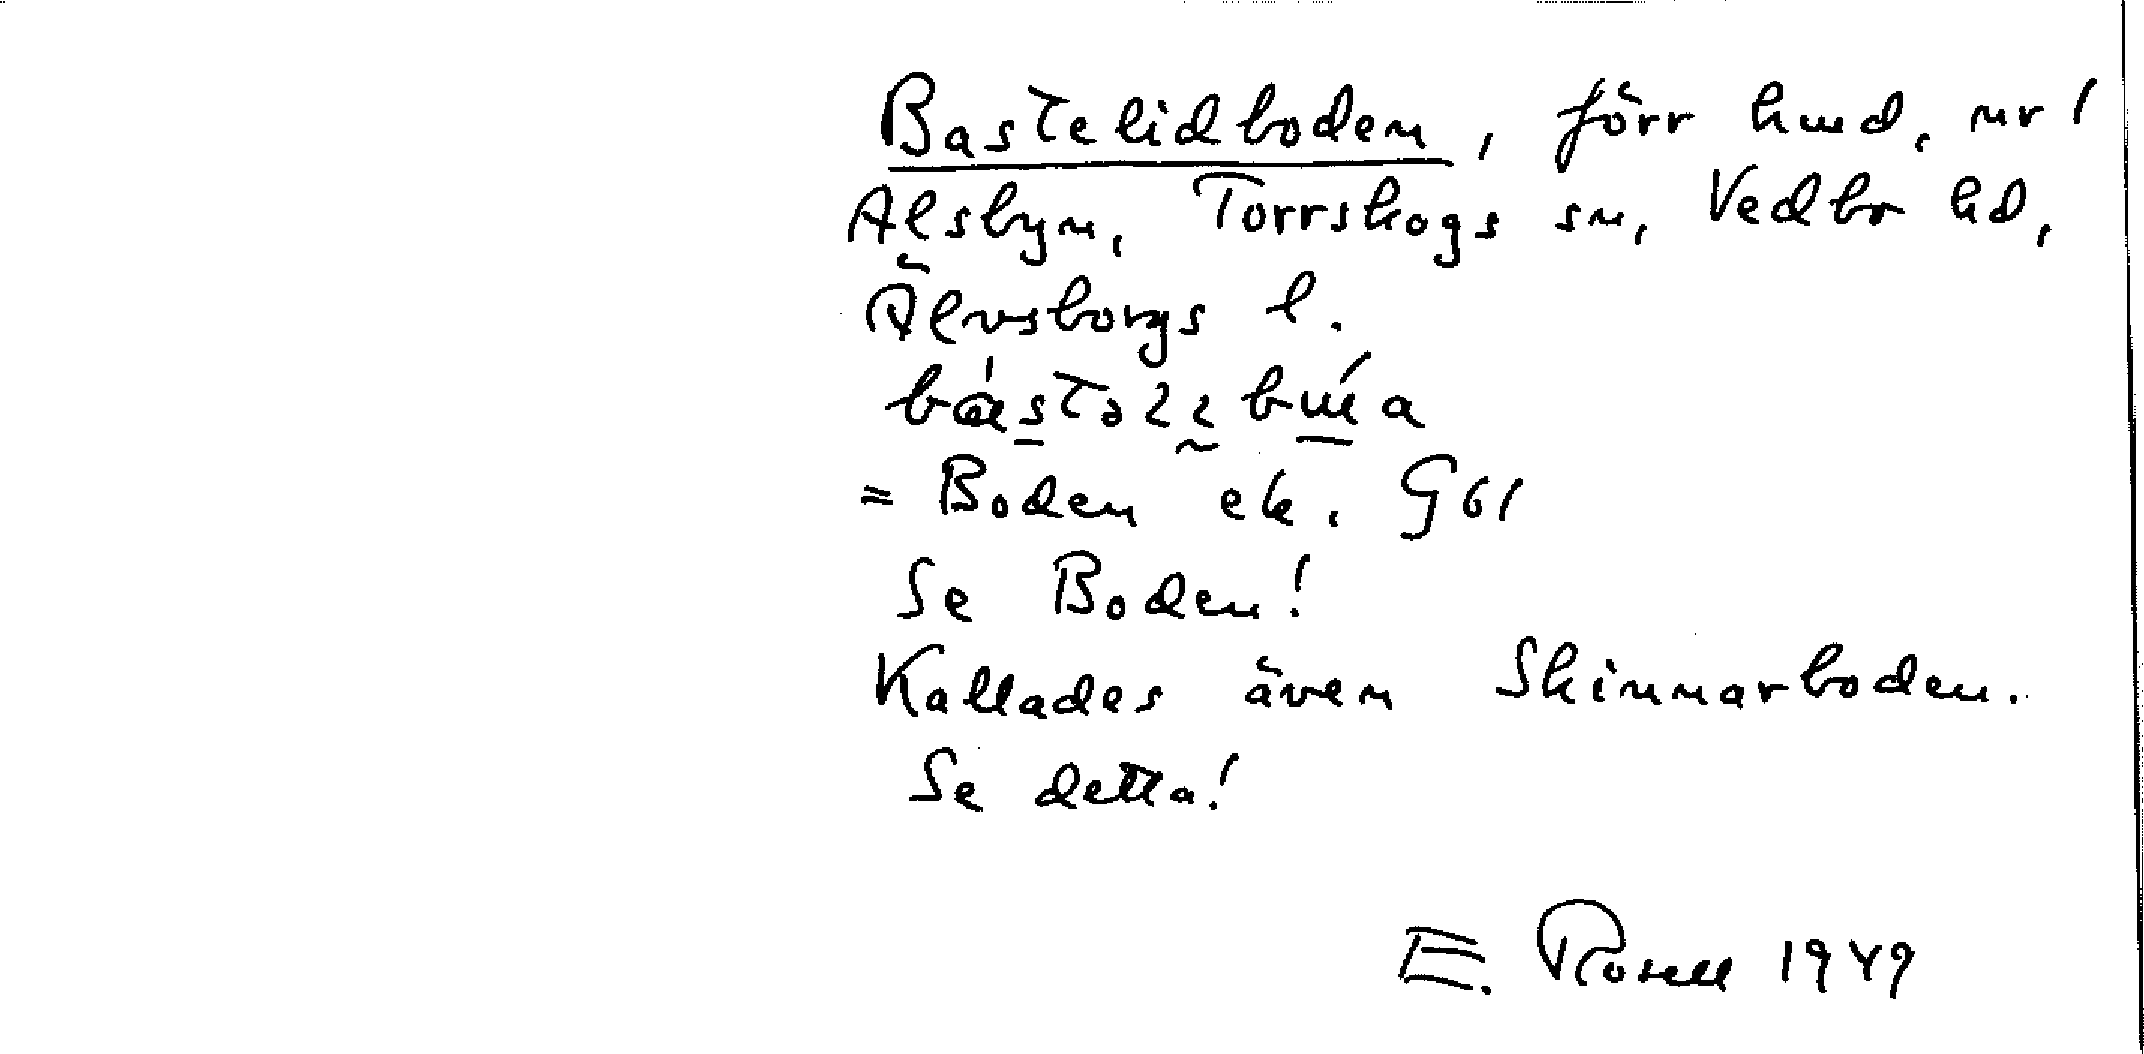 Bastelidboden, förr hmd, nr 1
Ålsbyn, Torrskogs sn, Vedbo hd,
Älvsborgs l.
= Boden ek. G61
Se Boden!
Kallades även Skinnarboden.
Se detta!
E. Rosell 1949